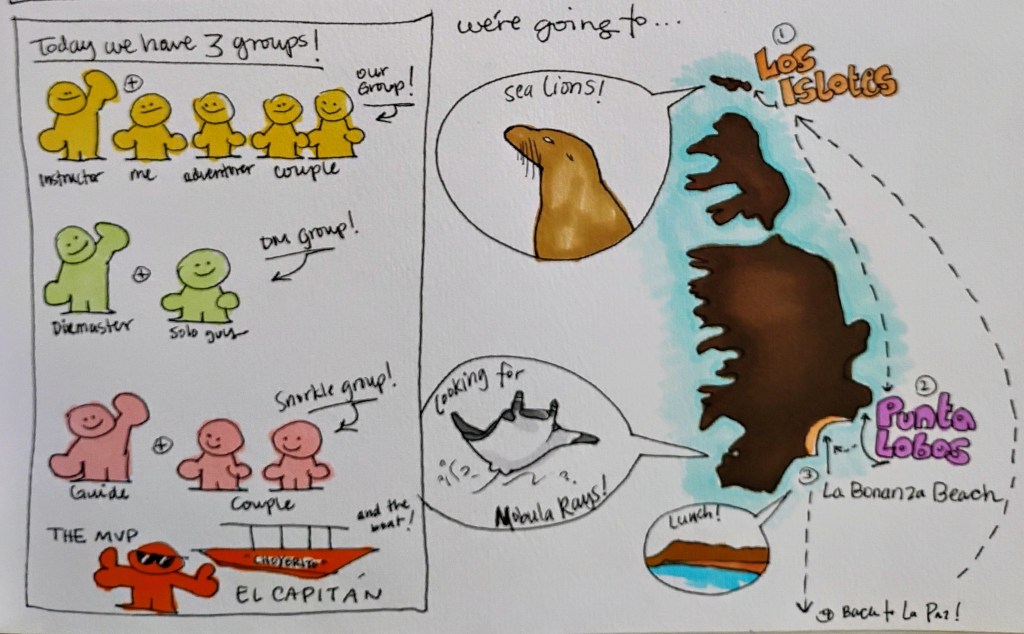 Today we have 3 groups!
our
Group!
+
Instructor
me
adventurer
couple
DM group!
+
Divemaster
Solo guy
Snorkle group!
+
Guide
Couple
THE MVP
and the
boat!
CHOYERITO
EL CAPITÁN
we're going to...
sea lions!
1
Los
Islotes
Looking for
Mobula Rays!
2
Punta
Lobos
3
La Bonanza Beach
Lunch!
4 Back to La Paz!